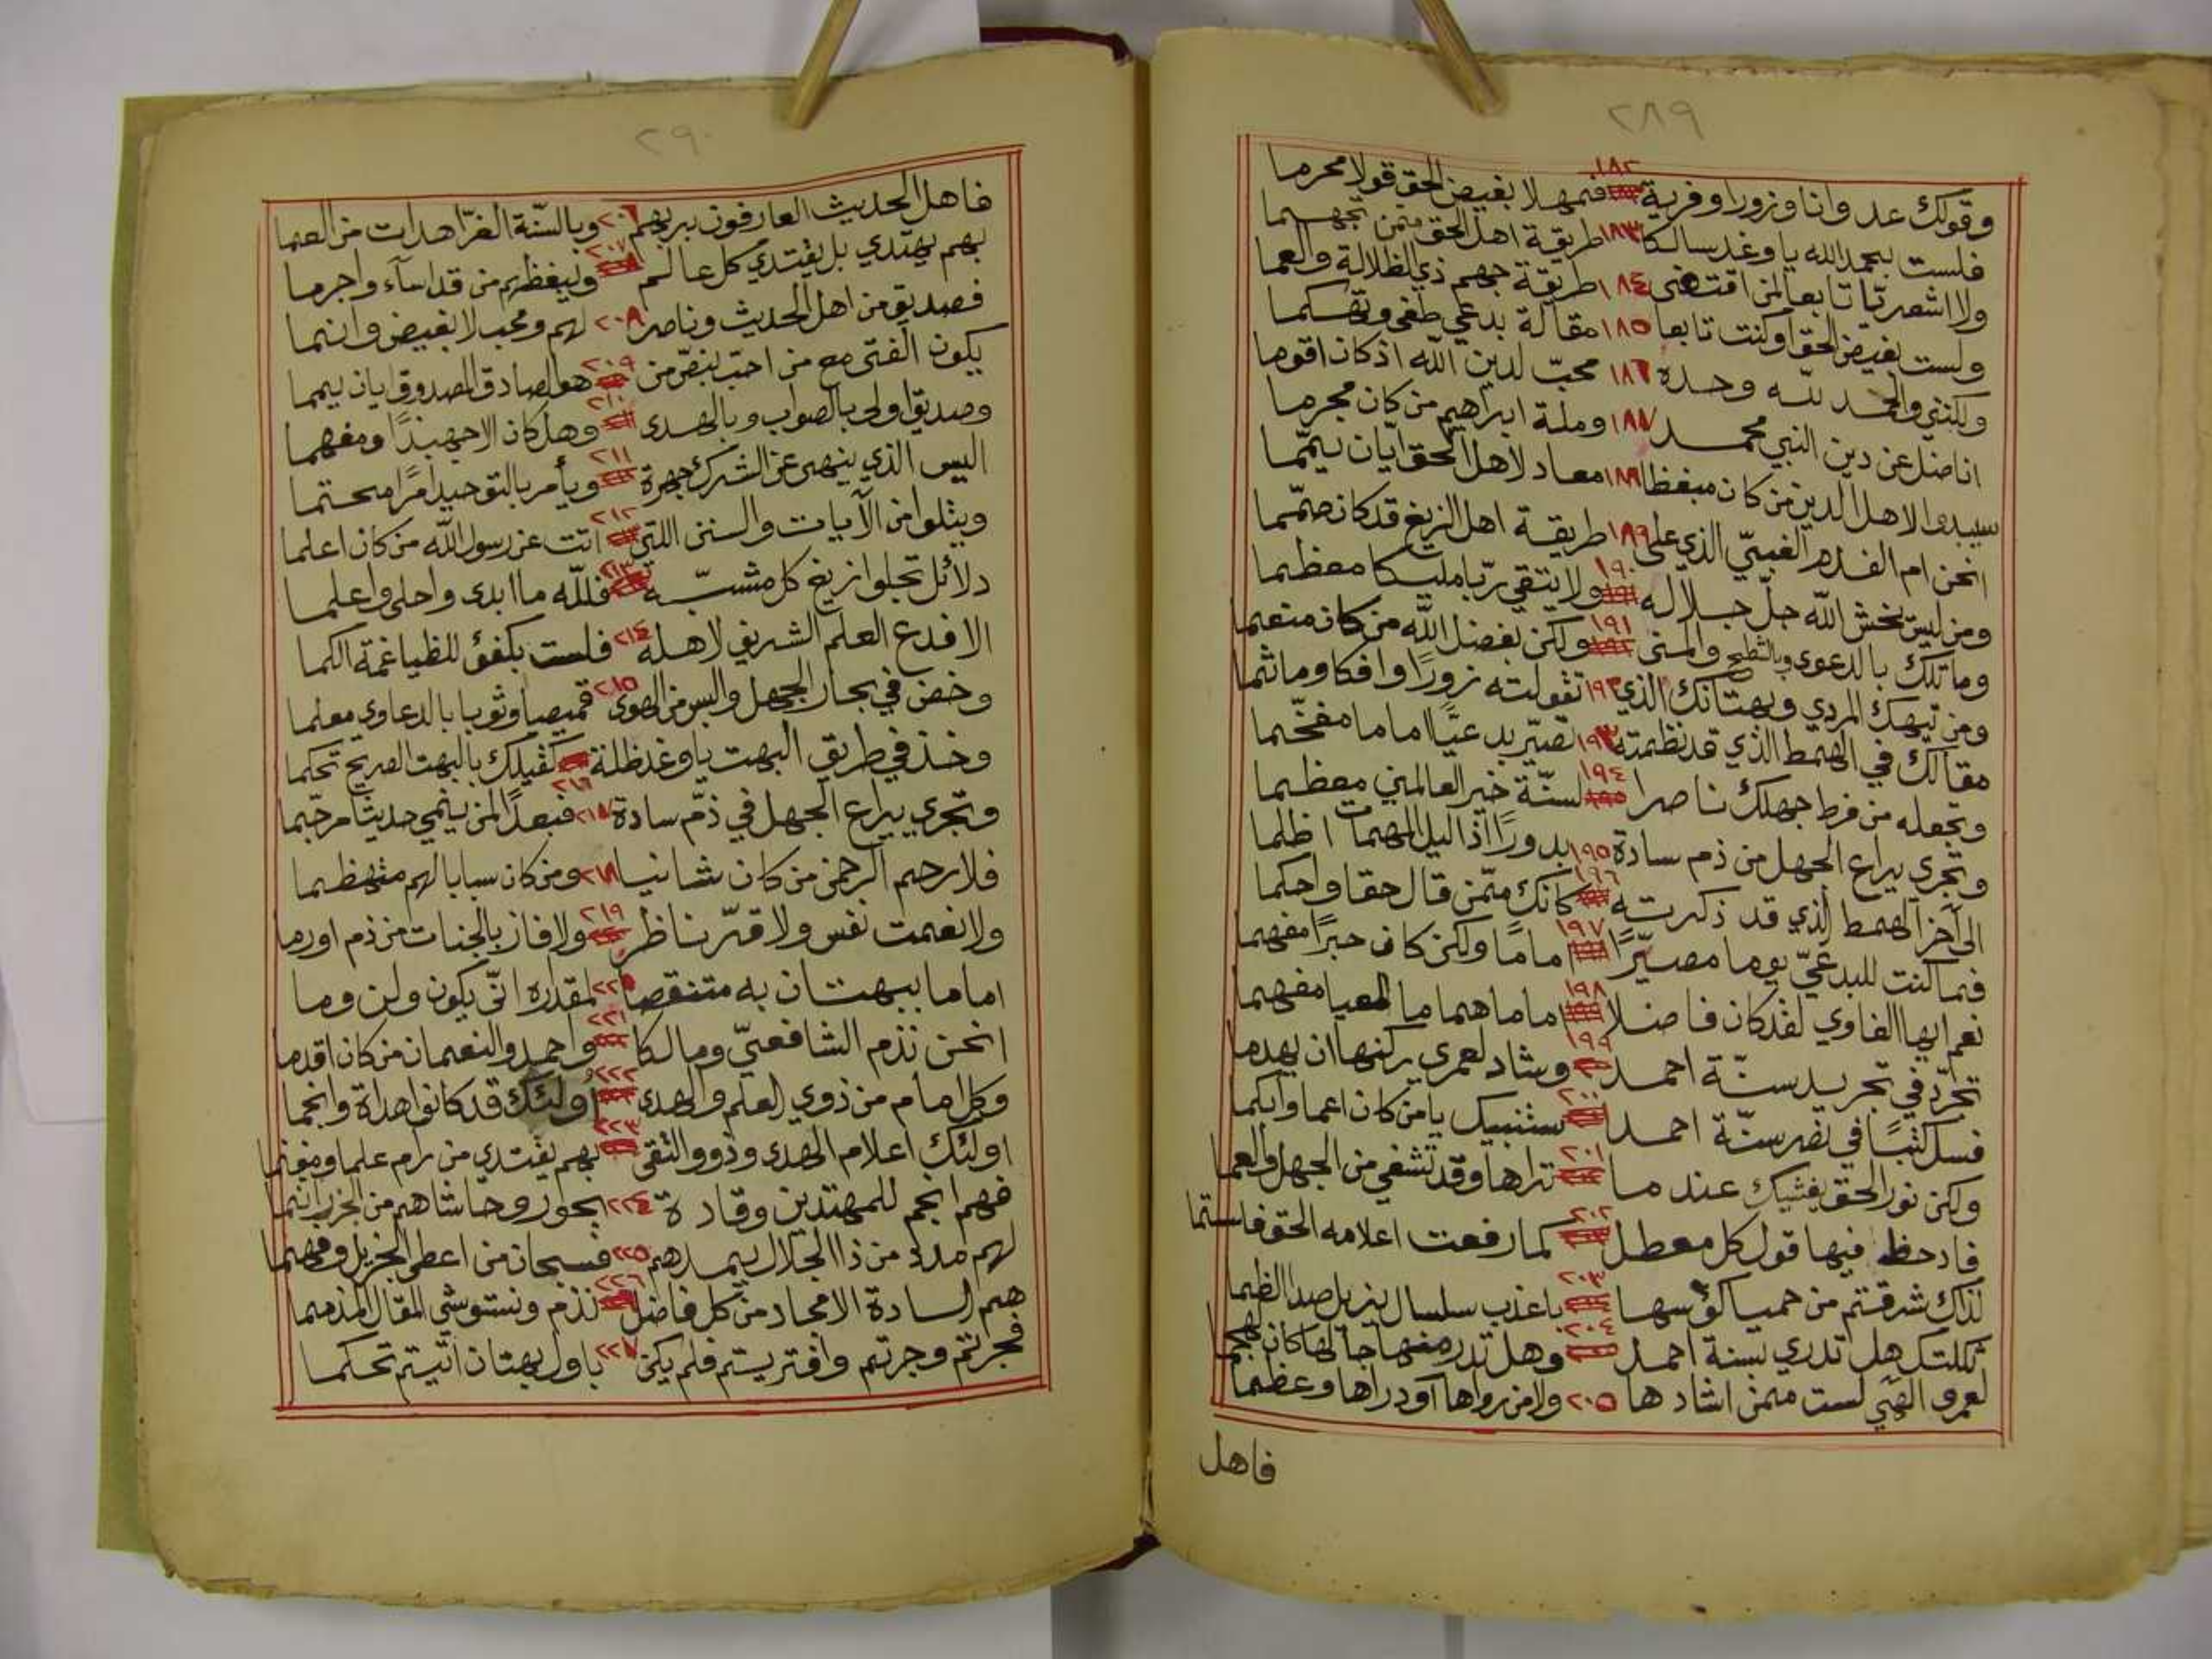 ٢٨٩
وقولك عدوانا وزورا وفرية ١٨٢ فمهلا بغيض الحق قولا محرما
فلست بحمد الله يا وغد سالكا ١٨٣ طريقة اهل الحق ممن تجهما
ولا اشعريّا تابعا لمن اقتفى ١٨٤ طريقة جهم ذي الظلالة والعما
ولست بغيض الحق او كنت تابعا ١٨٥ مقالة بدعي طغى وتهكما
ولكنني والحمد لله وحده ١٨٦ محبّ لدين الله اذ كان اقوما
اناضل عن دين النبي محمد ١٨٧ وملة ابراهيم من كان مجرما
سيبدوا لاهل الدين من كان مبغظا ١٨٨ معاد لاهل الحق ايّان يمّما
انحن ام الفدم الغبيّ الذي على ١٨٩ طريقة اهل الزيغ قد كان صمّما
ومن ليس يخش الله جلّ جلاله ١٩٠ ولا يتقي ربّا مليكا معظما
وما تلك بالدعوى وبالشطح والمنى ١٩١ ولكن بفضل الله من كان منعما
ومن تيهك المردي وبهتانك الذي ١٩٢ تقولته زورًا وافكا وماثما
مقالك في الهمط الذي قد نظمته ١٩٣ تصيّر بدعيّا اماما مفخّما
وتجعله من فرط جهلك ناصرا ١٩٤ لسنّة خير العالمين معظما
وتجري يراع الجهل من ذم سادة ١٩٥ بدورًا اذا ليل المهمات اظلما
الى آخر الهمط الذي قد ذكرته ١٩٦ كانك ممّن قال حقا واحكما
فما كنت للبدعيّ يوما مصيّرًا ١٩٧ امامًا ولكن كان حبرًا مفهما
نعم ايها الغاوي لقد كان فاضلا ١٩٨ اماما هماما المعيا مفهما
تجرّد في تجريد سنّة احمد ١٩٩ وشاد لعمري ركنها ان يهدما
فسل كتبًا في نصر سنّة احمد ٢٠٠ ستنبيك يا من كان اعما وابكما
ولكن نور الحق يغشيك عند ما ٢٠١ تراها وقد تشفي من الجهل والعما
فادحظ فيها قول كل معطل ٢٠٢ كما رفعت اعلامه الحق فاستما
لذاك شرقتم من حميا كؤسها ٢٠٣ باعذب سلسال يزيل صدا الظما
ثكلتك هل تدري بسنة احمد ٢٠٤ وهل تدر منهاجا لها كان لهجما
لعمرو الهي لست ممن اشادها ٢٠٥ ولا من رواها او دراها وعظما
فاهل
٢٩٠
فاهل الحديث العارفون بربهم ٢٠٦ وبالسّنّة الغرّا هداة من العما
بهم يهتدي بل يقتدي كل عالم ٢٠٧ ويبغظهم من قد اساء واجرما
فصديق من اهل الحديث وناصر ٢٠٨ لهم ومحب لا بغيض وانما
يكون الفتى مع من احبّ بنصّ من ٢٠٩ هو الصادق المصدوق ايان يمما
وصديق اولى بالصواب وبالهدى ٢١٠ وهل كان الا جهبذًا ومفهما
اليس الذي ينهى عن الشرك جهرة ٢١١ ويأمر بالتوحيد امرًا محتما
ويتلوا من الآيات والسنن اللتي ٢١٢ اتت عن رسول الله من كان اعلما
دلائل تجلوا زيغ كل مشبّه ٢١٣ فلله ما ابدى واحلى واعلما
الا فدع العلم الشريف لاهله ٢١٤ فلست بكفؤ للظيا غمة الكما
وخض في بحار الجهل والبس من الهوى ٢١٥ قميصا وثوبا بالدعاوي معلما
وخذ في طريق البهت يا وغد ظلة ٢١٦ كقيلك بالبهت الصريح تحكما
وتجري يراع الجهل في ذمّ سادة ٢١٧ فبعدًا لمن ينمي حديثا مرجّما
فلا رحم الرحمن من كان شانيا ٢١٨ ومن كان سبابا لهم متهظما
ولا نعمت نفس ولا قرّ ناظر ٢١٩ ولا فاز بالجنات من ذم او رما
اماما ببهتان به متنقصا ٢٢٠ لمقداره انّى يكون ولن وما
انحن نذم الشافعيّ ومالكا ٢٢١ واحمد والنعمان من كان اقدما
وكل امام من ذوي العلم والهدى ٢٢٢ أولئك قد كانوا هداة وانجما
اولئك اعلام الهدى وذووا التقى ٢٢٣ بهم يقتدي من رم علما ومغنما
فهم انجم للمهتدين وقادة ٢٢٤ بحور وحاشاهم من الجزر انما
لهم مدد من ذا الجلال يمدهم ٢٢٥ فسبحان من اعطى الجزيل وفهما
هم السادة الامجاد من كل فاضل ٢٢٦ نذم ونستوشي المقال المذمما
فجرتم وجرتم وافتريتم فلم يكن ٢٢٧ باول بهتان اتيتم تحكما